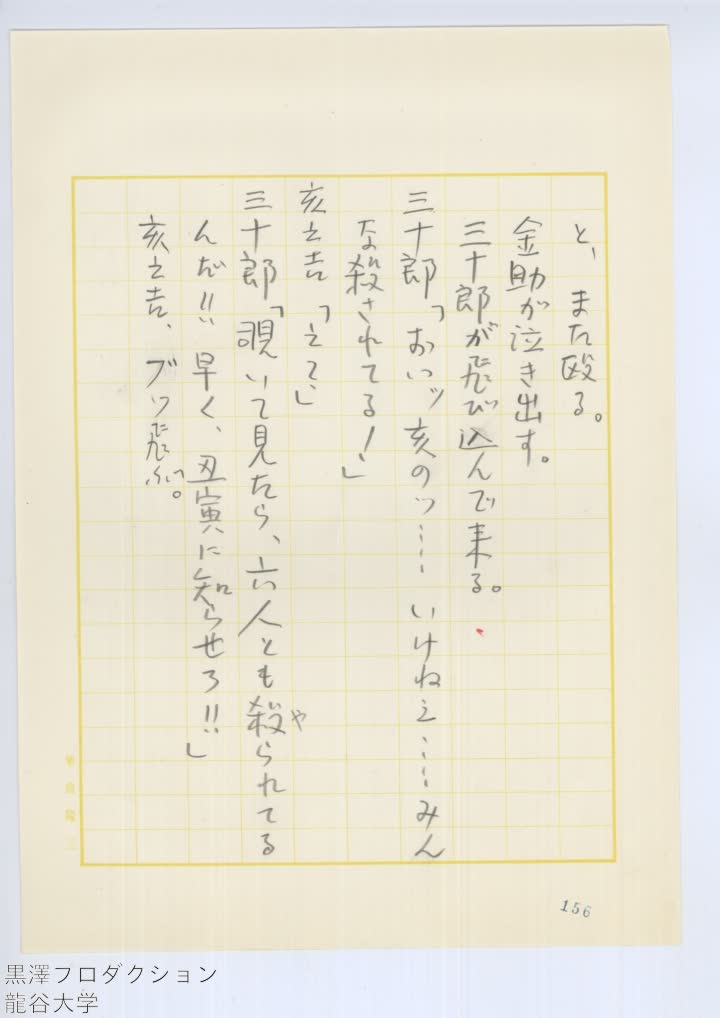 と、また殴る。
金助が泣き出す。
三十郎が飛び込んで来る。
三十郎「おいッ亥のッ……いけねえ……みん
な殺されてる！」
亥之吉「えっ」
三十郎「覗いて見たら、六人とも殺られてる
や
んだ!! 早く、丑寅に知らせろ!!」
亥之吉、ブッ飛ぶ。
156
黒澤プロダクション
龍谷大学